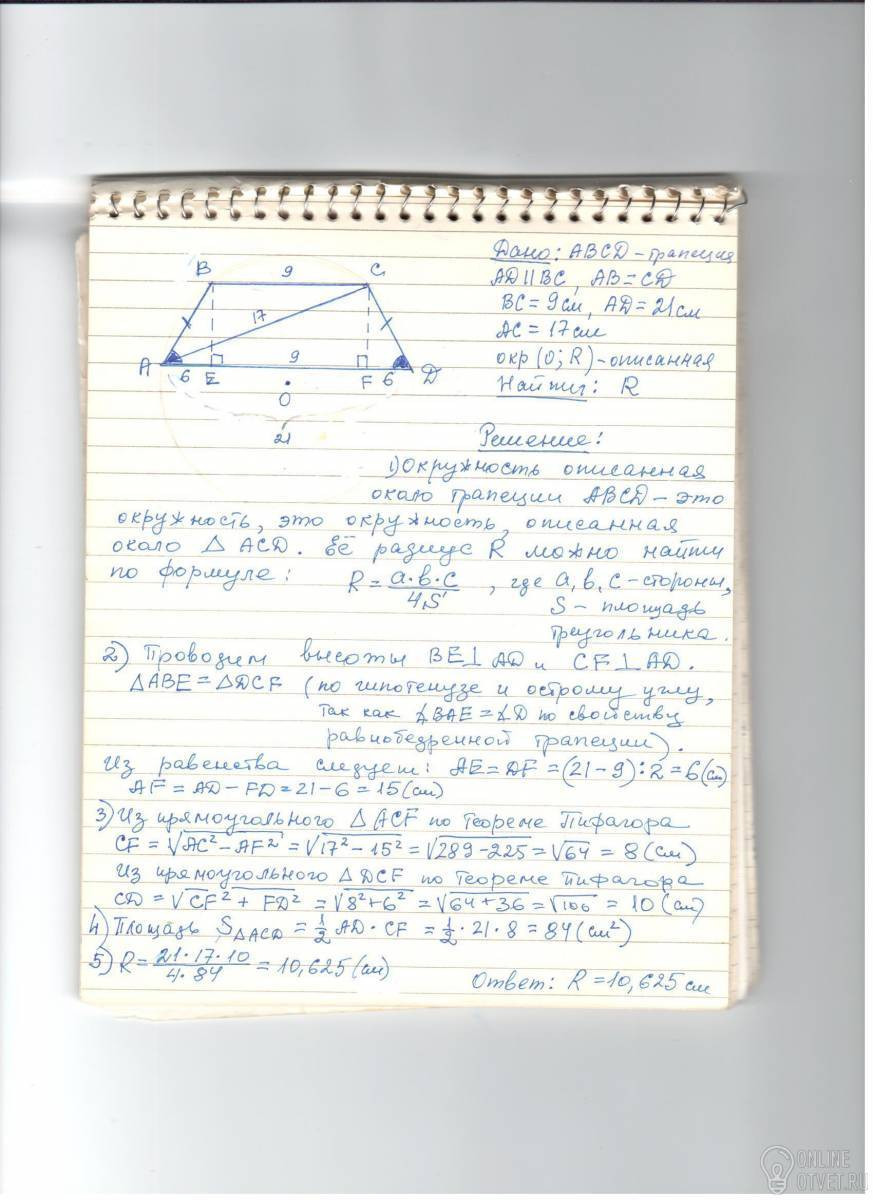 B 9 C
17
A 6 E 9 F 6 D
O
21
Дано: ABCD – трапеция
AD || BC, AB = CD
BC = 9 см, AD = 21 см
AC = 17 см
окр (O; R) – описанная
Найти: R
Решение:
1) Окружность описанная
около трапеции ABCD – это
окружность, это окружность, описанная
около △ ACD. Её радиус R можно найти
по формуле: R = a·b·c / 4S , где a, b, c – стороны,
S – площадь
треугольника.
2) Проводим высоты BE ⊥ AD и CF ⊥ AD.
△ABE = △DCF (по гипотенузе и острому углу,
так как ∡BAE = ∡D по свойству
равнобедренной трапеции).
Из равенства следует: AE = DF = (21 – 9) : 2 = 6 (см)
AF = AD – FD = 21 – 6 = 15 (см)
3) Из прямоугольного △ ACF по теореме Пифагора
CF = √AC² – AF² = √17² – 15² = √289 – 225 = √64 = 8 (см)
Из прямоугольного △ DCF по теореме Пифагора
CD = √CF² + FD² = √8² + 6² = √64 + 36 = √100 = 10 (см)
4) Площадь S△ACD = 1/2 AD · CF = 1/2 · 21 · 8 = 84 (см²)
5) R = 21 · 17 · 10 / 4 · 84 = 10,625 (см)
Ответ: R = 10,625 см
ONLINE
OTVET.RU